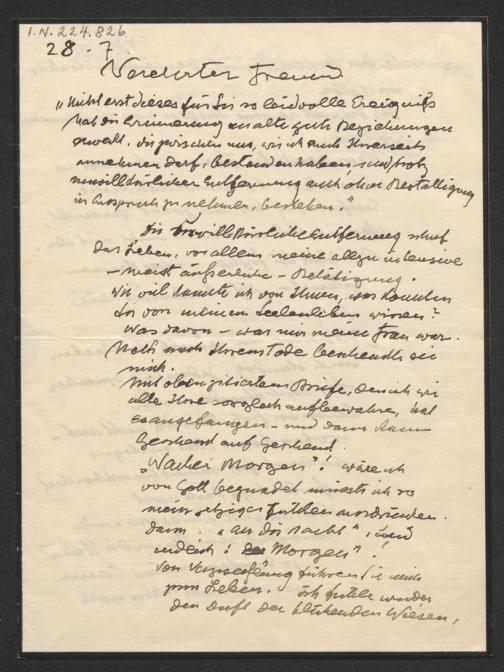 I.N. 224.826
28. 7.
Verehrter Freund
„Nicht erst dieses für Sie so leidvolle Ereignis
hat die Erinnerung an alte gute Beziehungen
geweckt, die zwischen uns, wie ich auch Ihrerseits
annehmen darf, bestanden haben und, trotz
unwillkürlicher Entfernung auch ohne Bestätigung
in Anspruch zu nehmen, bestehen."
Die unwillkürliche Entfernung schuf
das Leben, vor allem meine allzu intensive
– meist äußerliche – Betätigung.
Wie viel konnte ich von Ihnen, was konnten
Sie von meinem Seelenleben wissen?
Was davon – was mir meine Frau war.
Noch nach Ihrem Tode beschenkte sie
mich.
Mit oben zitiertem Briefe, den ich wie
alle Ihre sorglich aufbewahre, hat
es angefangen – und dann kam
Geschenk auf Geschenk.
Morgen"! wäre ich
von Gott begnadet müsste ich so
mein jetziges Fühlen ausdrücken.
Dann: „An die Nacht", und
endlich: Morgen"!
Von Verzweiflung führen Sie mich
zum Leben. Ich fühle wieder
den Duft der blühenden Wiesen,